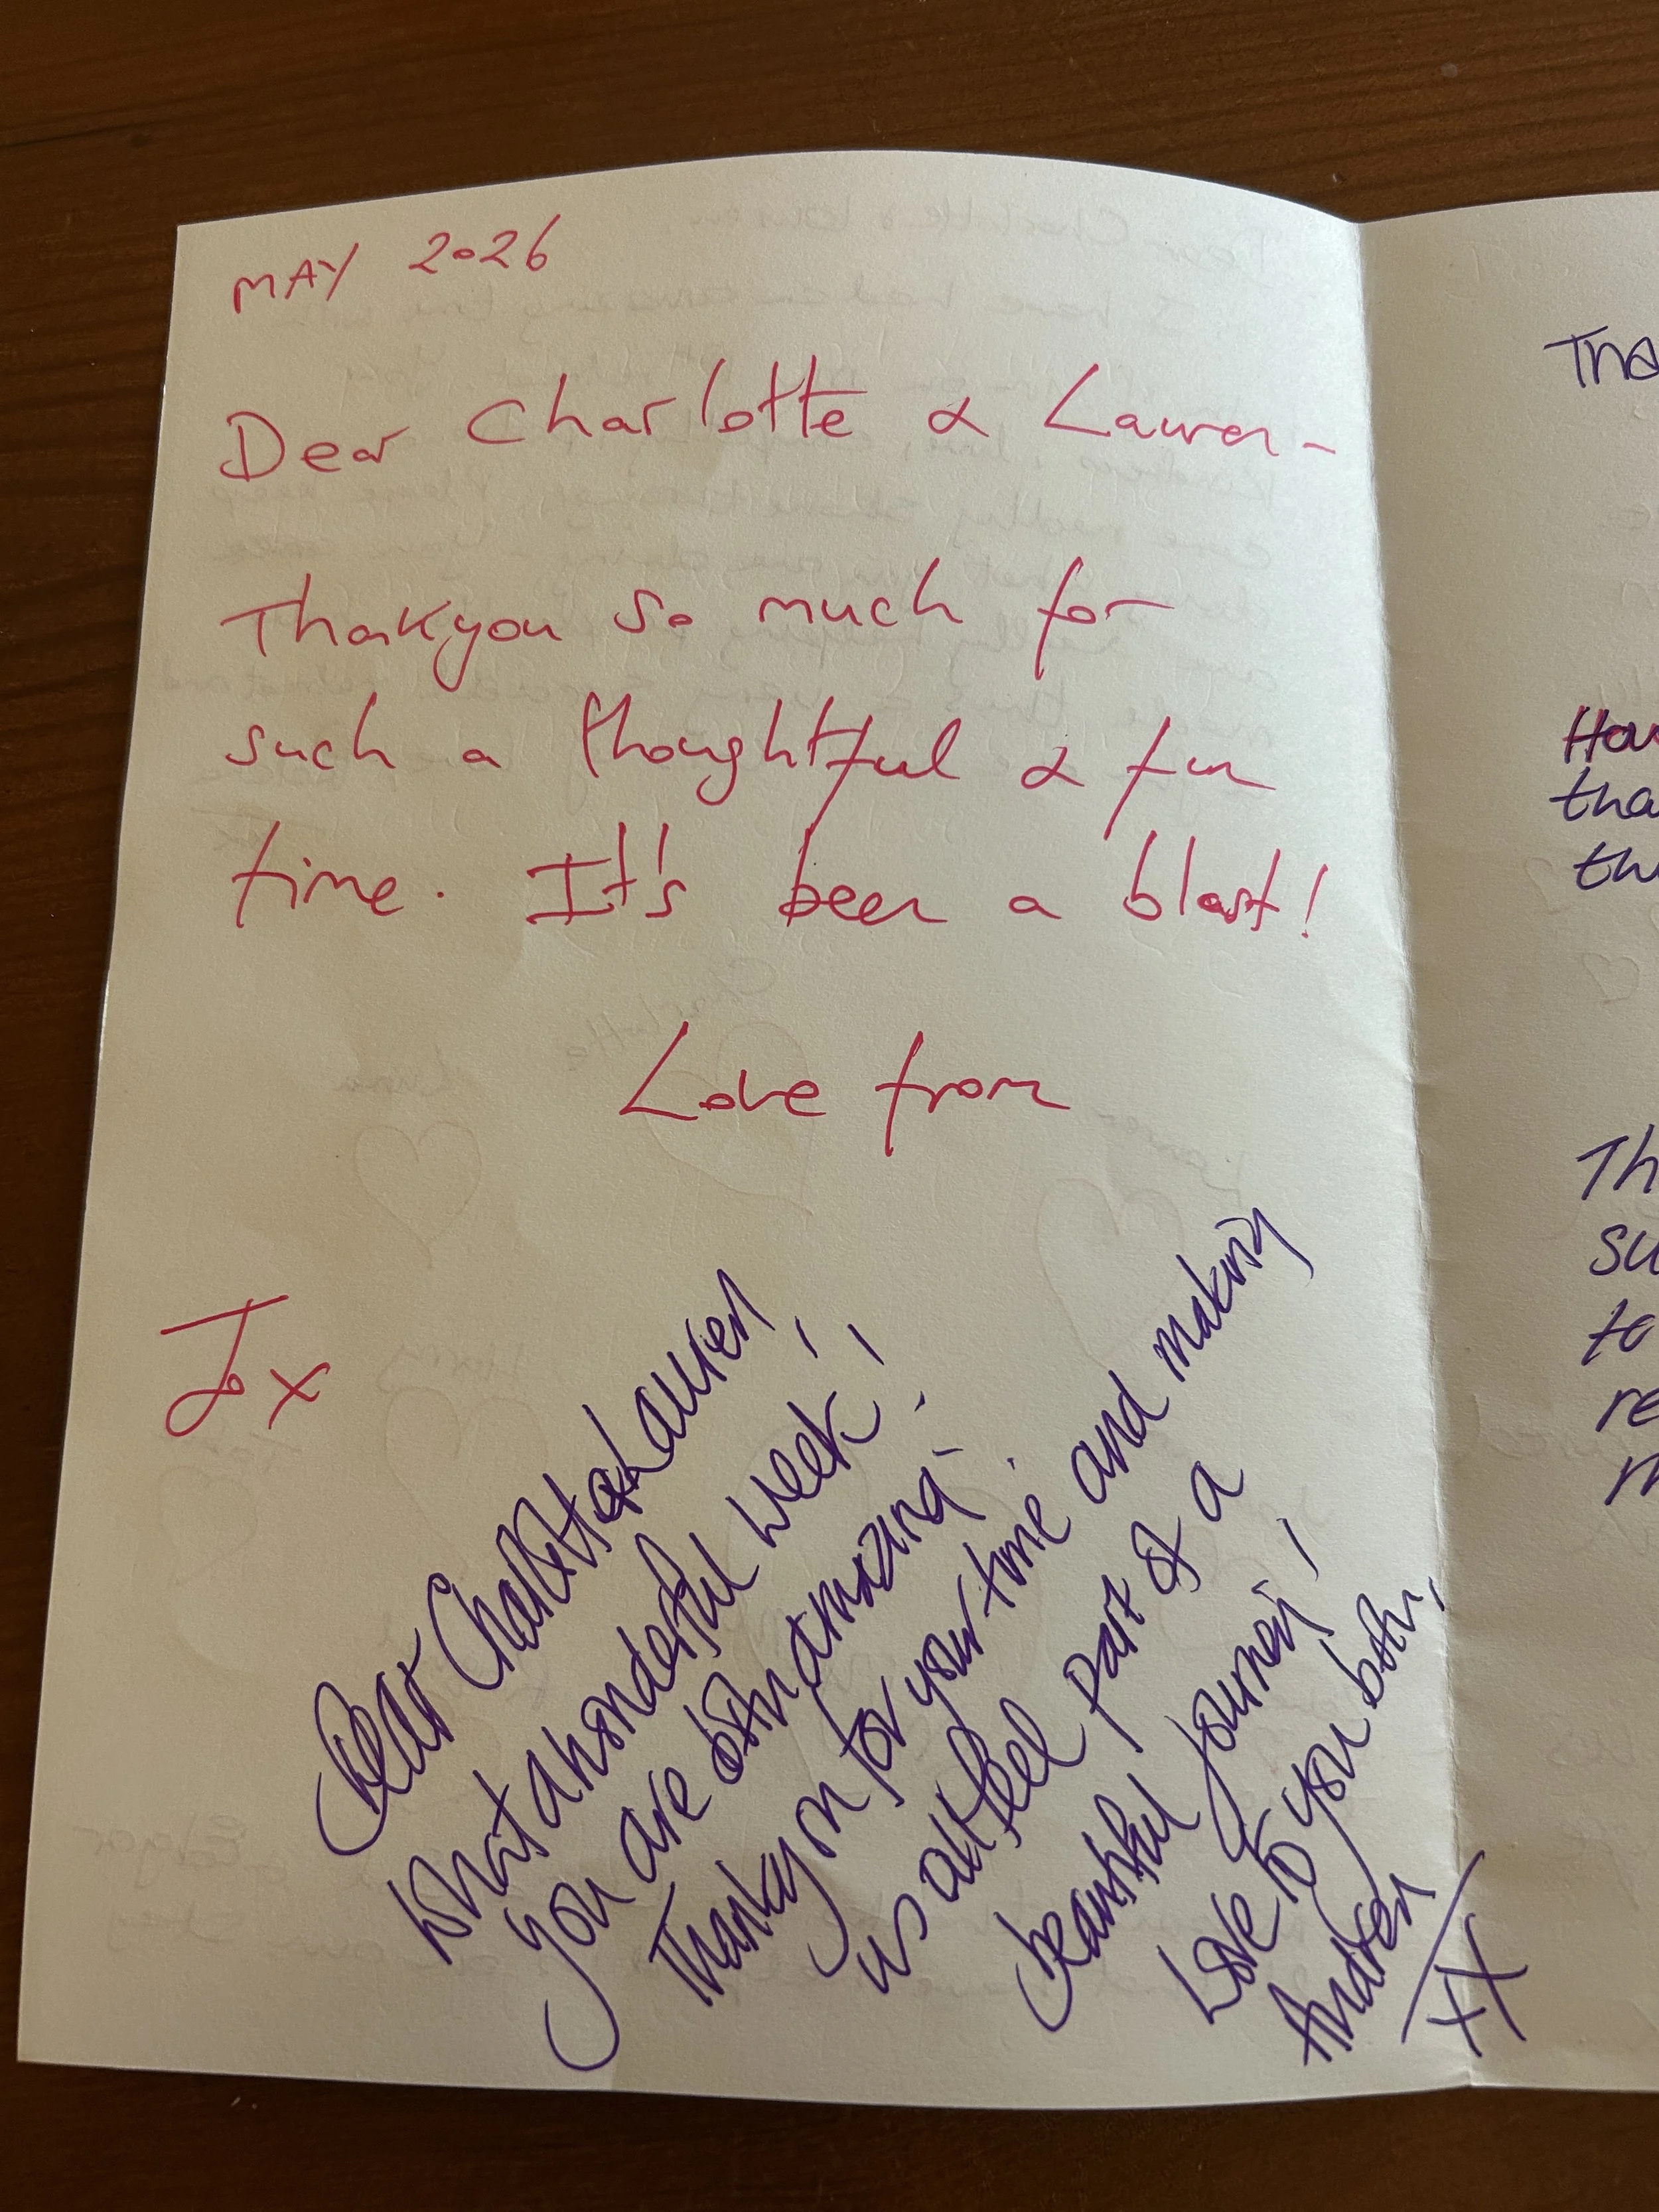 MAY 2026
Dear Charlotte & Lauren -
Thankyou so much for
such a thoughtful & fun
time. It's been a blast!
Love from
Jo x
Dear Charlotte & Lauren,
What a wonderful week!
You are both amazing.
Thankyou for your time and making
us all feel part of a
beautiful journey!
Love to you both,
Andrea
xx
Tha
How
tha
th
Th
su
to
re
m